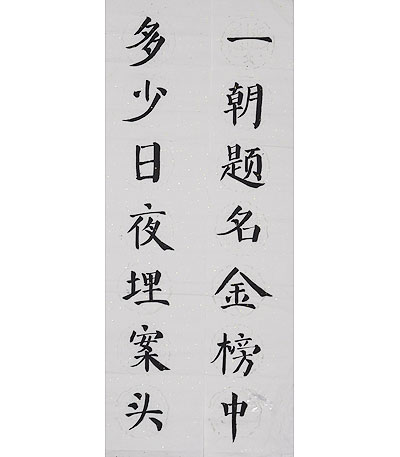 一朝题名金榜中
多少日夜埋案头